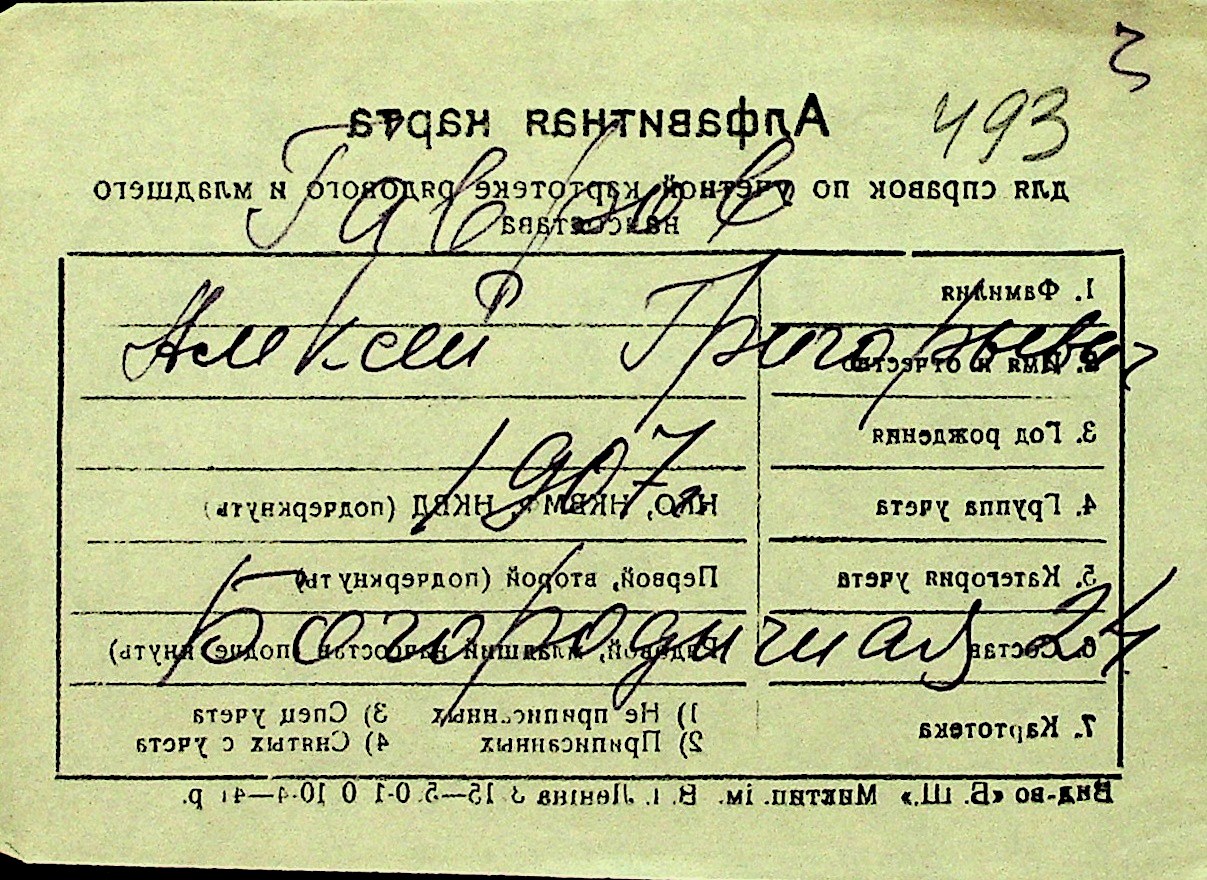 ζ
493
Алфавитная карта
Гавров
для справок по учетной картотеке рядового и младшего
начсостава
1. Фамилия
Алексей Григорьевич
2. Имя и отчество
3. Год рождения
1907
4. Группа учета НКО, НКВМФ, НКВД (подчеркнуть)
5. Категория учета Первой, второй (подчеркнуть)
Богородичная 24
6. Состав Рядовой, младший начсостав (подчеркнуть)
7. Картотека 1) Не приписанных 3) Спец учета
2) Приписанных 4) Снятых с учета
Вид-во «Б. Ш.» Миктип. ім. В. І. Леніна З.